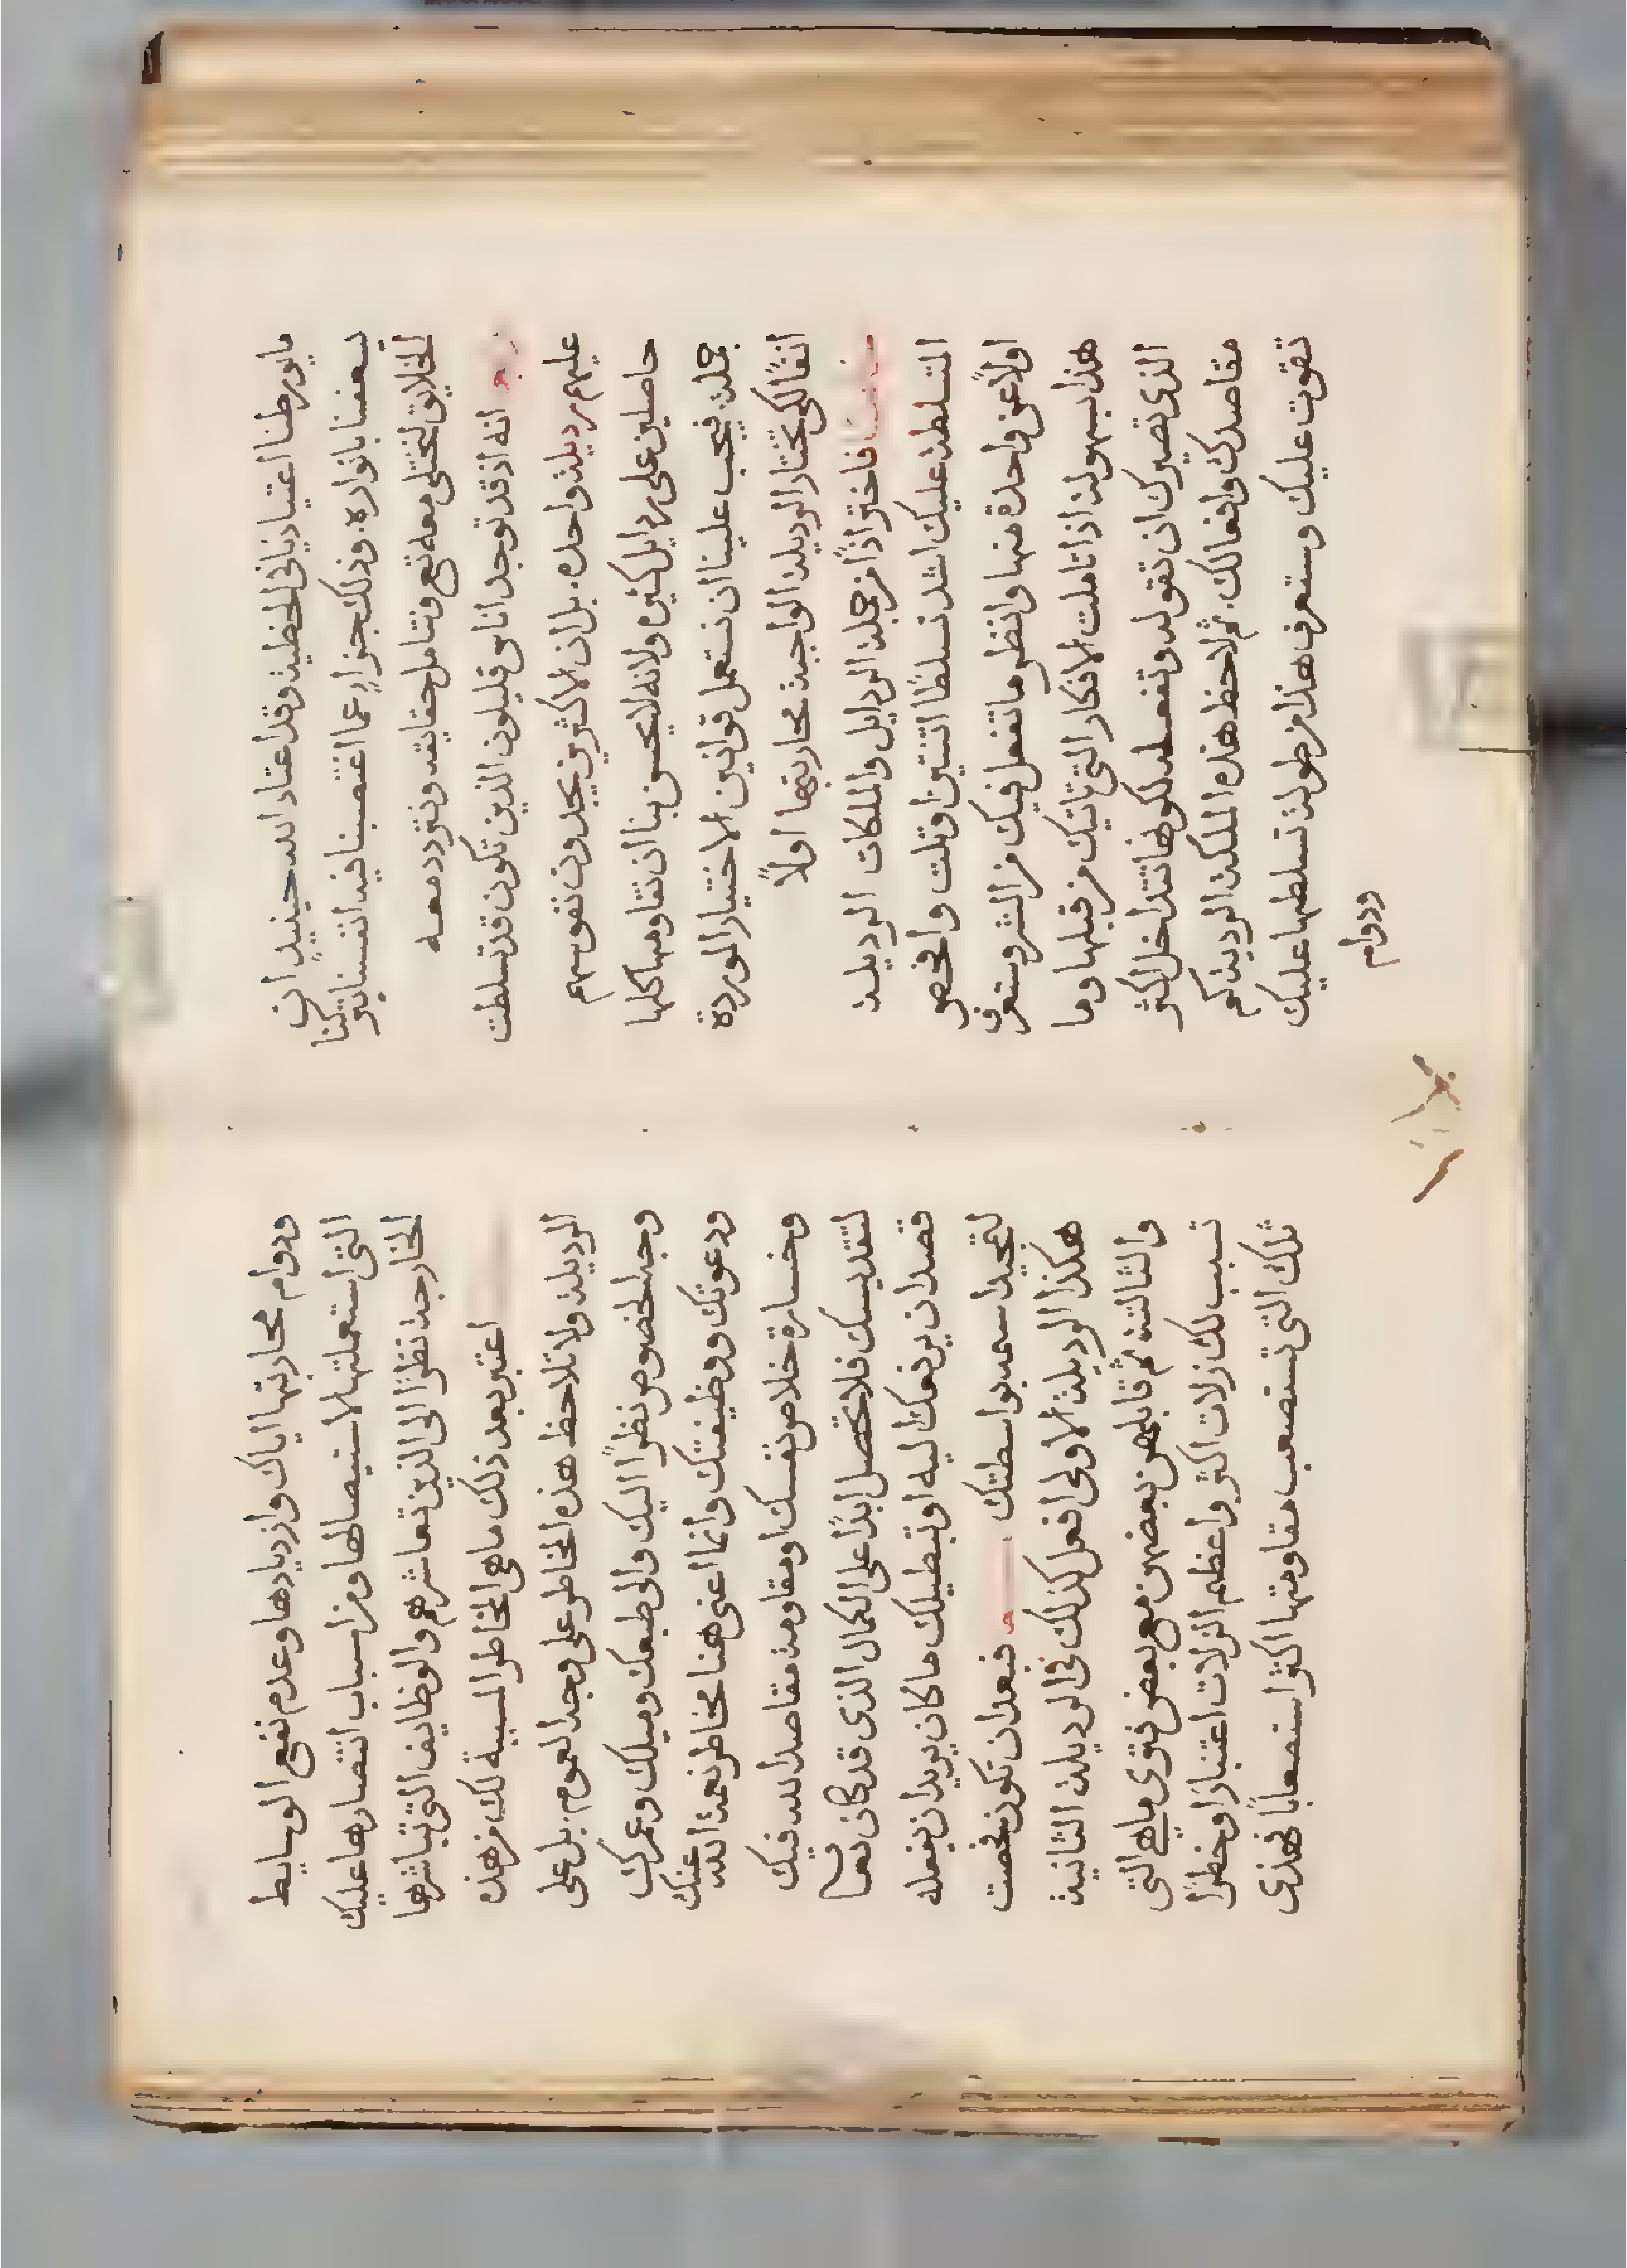 مايورطنا اعتيادنا في الخطية وقد اعتاد الله حينيذٍ ان
يسعفنا بانواره. وذلك جزاءٍ عما اغتصبنا فيه انفسنا بتركنا
الخلايق لنختلي معه تع ونتامل حقايقه ونتردد معه
انه اذ قد توجد اناس قليلون الذين تكون قد تسلطت
عليهم رديلة واحده. بل ان الاكثرين يجدون نفوسهم
حاصلين على ردايل كثيره ولانه لا يحسن بنا ان نقاومها كلها
جملة. فيجب علينا ان نستعمل قوانين الاختيار الموردة
انفًا لكي نختار الرديلة الواجبة محاربتها اولاً
فاختر اذًا من جملة الردايل والملكات الرديلة
المتسلطة عليك اشد تسلطًا اثنتين او ثلث وافحص
اولاً عن واحدة منها وانظر ما تفعل فيك من الشر وستعرف
هذا بسهولة اذا تاملت الافكار التي تاتيك من قبلها وما
الذي تصيرك ان تقوله وتفعله لكونها تتداخل اكثر
مقاصدك وافعالك. ثم لاحظ هذه الملكة الردية كم
تقوت عليك وستعرف هذا من طولة تسلطها عليك
ودوام
ودوام محاربتها اياك وازديادها وعدم نفع الوسايط
التي استعملتها لاستيصالها ومن اسباب انتصارها عليك
الخارجة نظرًا الى الذين تعاشرهم والوظايف التي تباشرها
اعتبر بعد ذلك ماهي المخاطر المسببة لك من هذه
الرديلة ولا تلاحظ هذه المخاطر على وجه العموم. بل على
وجه الخصوص نظرًا اليك والى طبعك وميلك وعمرك
ودعوتك ووظيفتك وانما اعني هنا مخاطر نعمة الله عنك
وخسارة خلاص نفسك او مقاومة مقاصد الله فيك
لتقديسك فلا تحصل ابدًا على الكمال الذي قد كان تعالى
قصد ان يرفعك اليه او تبطيلك ما كان يريد ان يفعله
لتمجيد اسمه بواسطتك فبعد ان تكون فحصت
هكذا الرديلة الاولى افعل كذلك في الرديلة الثانية
والثالثة ثم قابلهن بعضهن مع بعض فترى ماهي التي
تسبب لك زلات اكثر واعظم الزلات اعتبارًا وخطرًا
تلك التي تستصعب مقاومتها اكثر استصعابًا فهذي